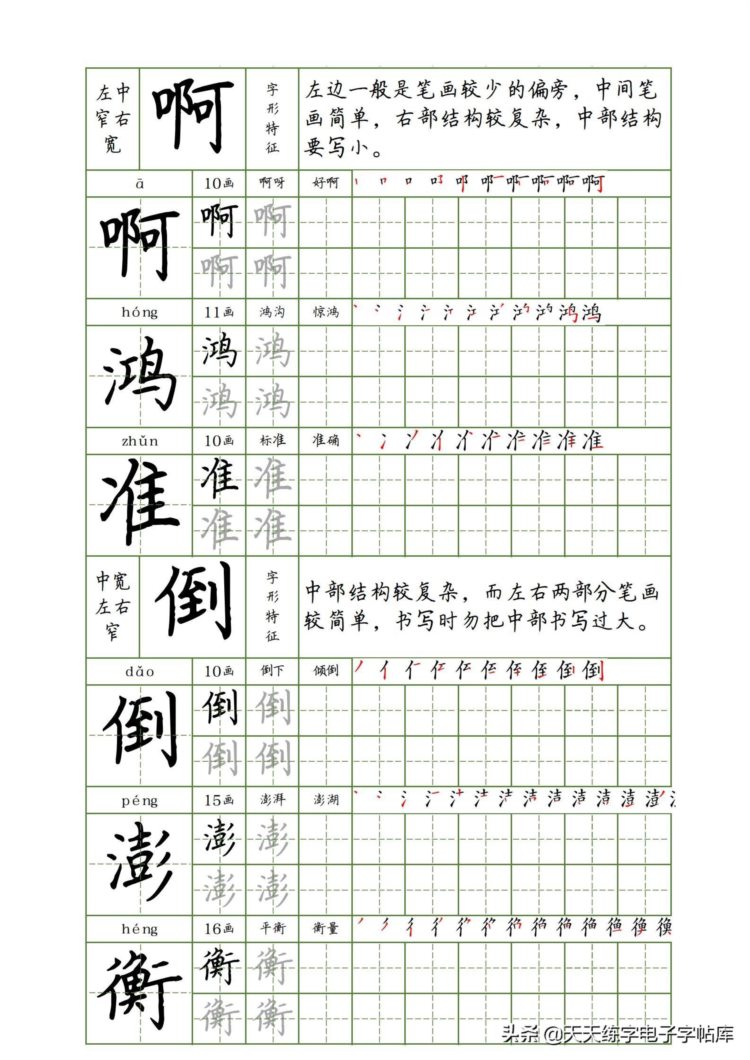 左中
窄右
宽
啊
字形特征
左边一般是笔画较少的偏旁，中间笔
画简单，右部结构较复杂，中部结构
要写小。
ā 10画 啊呀 好啊
啊 啊 啊
啊 啊
hóng 11画 鸿沟 惊鸿
鸿 鸿 鸿
鸿 鸿
zhǔn 10画 标准 准确
准 准 准
准 准
中宽
左右
窄
倒
字形特征
中部结构较复杂，而左右两部分笔画
较简单，书写时勿把中部书写过大。
dǎo 10画 倒下 倾倒
倒 倒 倒
倒 倒
péng 15画 澎湃 澎湖
澎 澎 澎
澎 澎
héng 16画 平衡 衡量
衡 衡 衡
衡 衡
头条 @天天练字电子字帖库